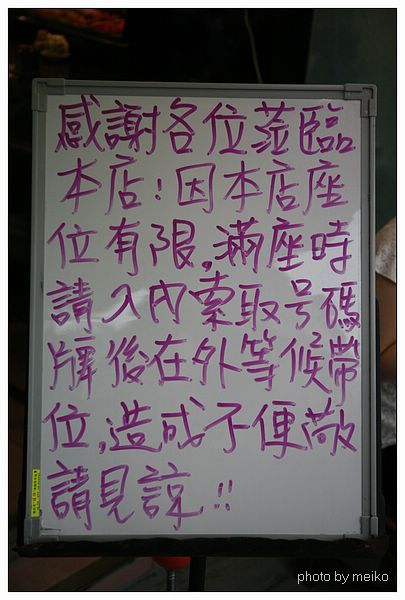 感謝各位蒞臨
本店!因本店座
位有限,滿座時
請入內索取号碼
牌後在外等候帶
位,造成不便敬
請見諒!!
photo by meiko